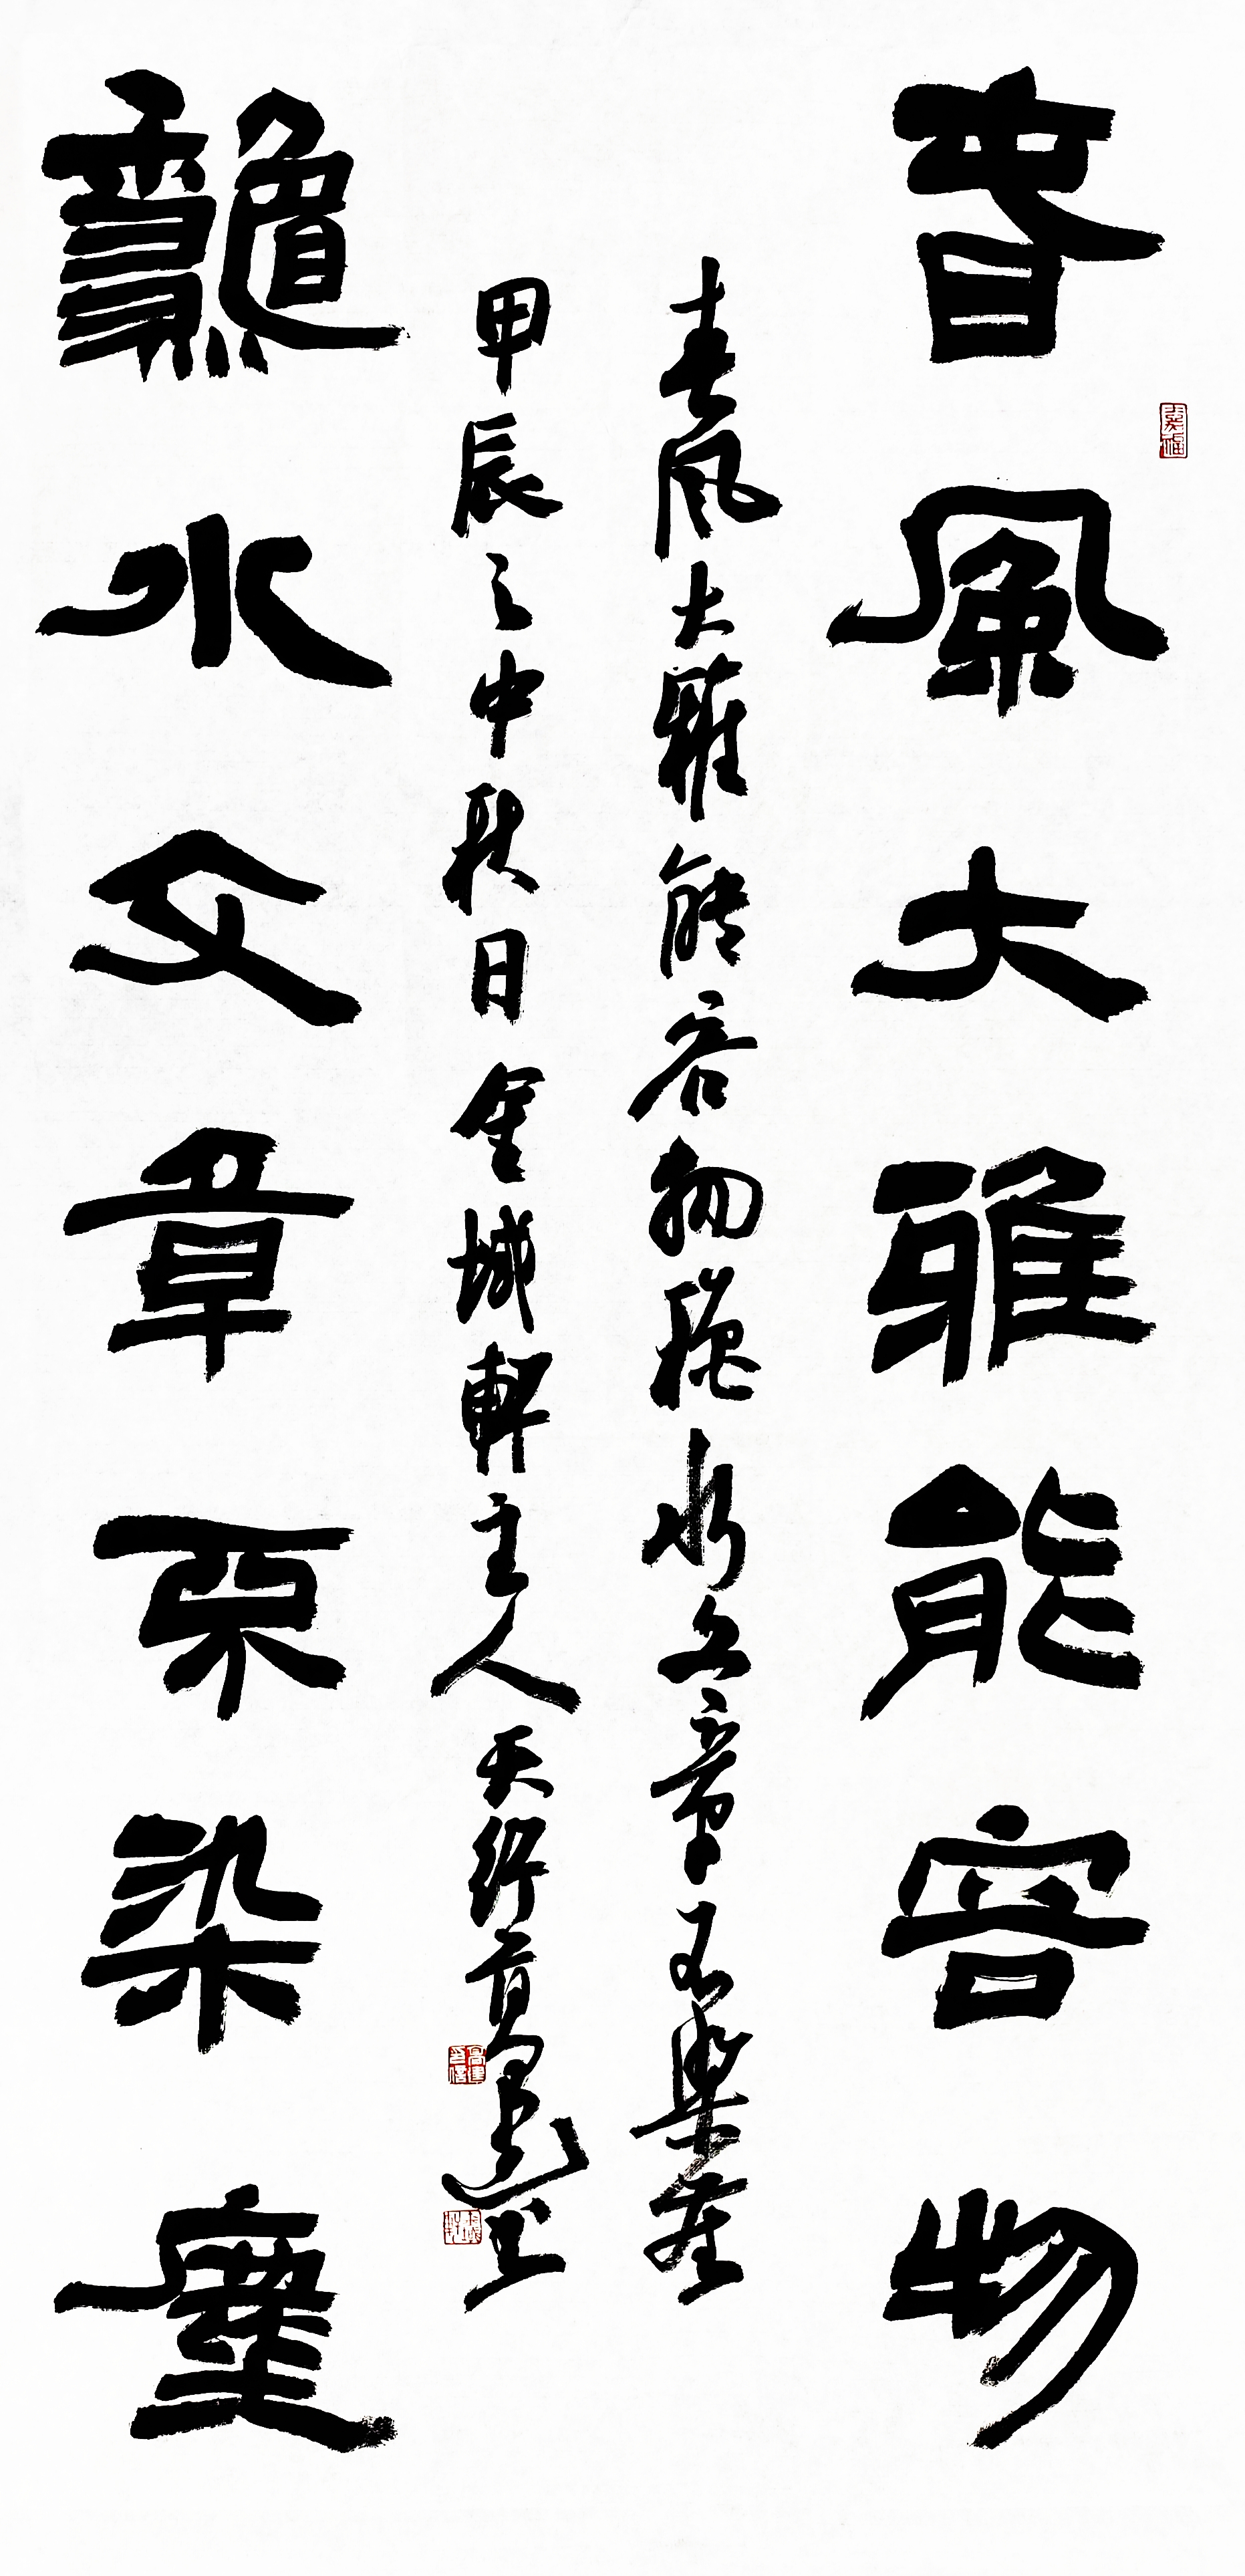 春風大雅能容物
春風大雅能容物秋水文章不染塵
甲辰之中秋日金城軒主人天行
龝水文章不染塵